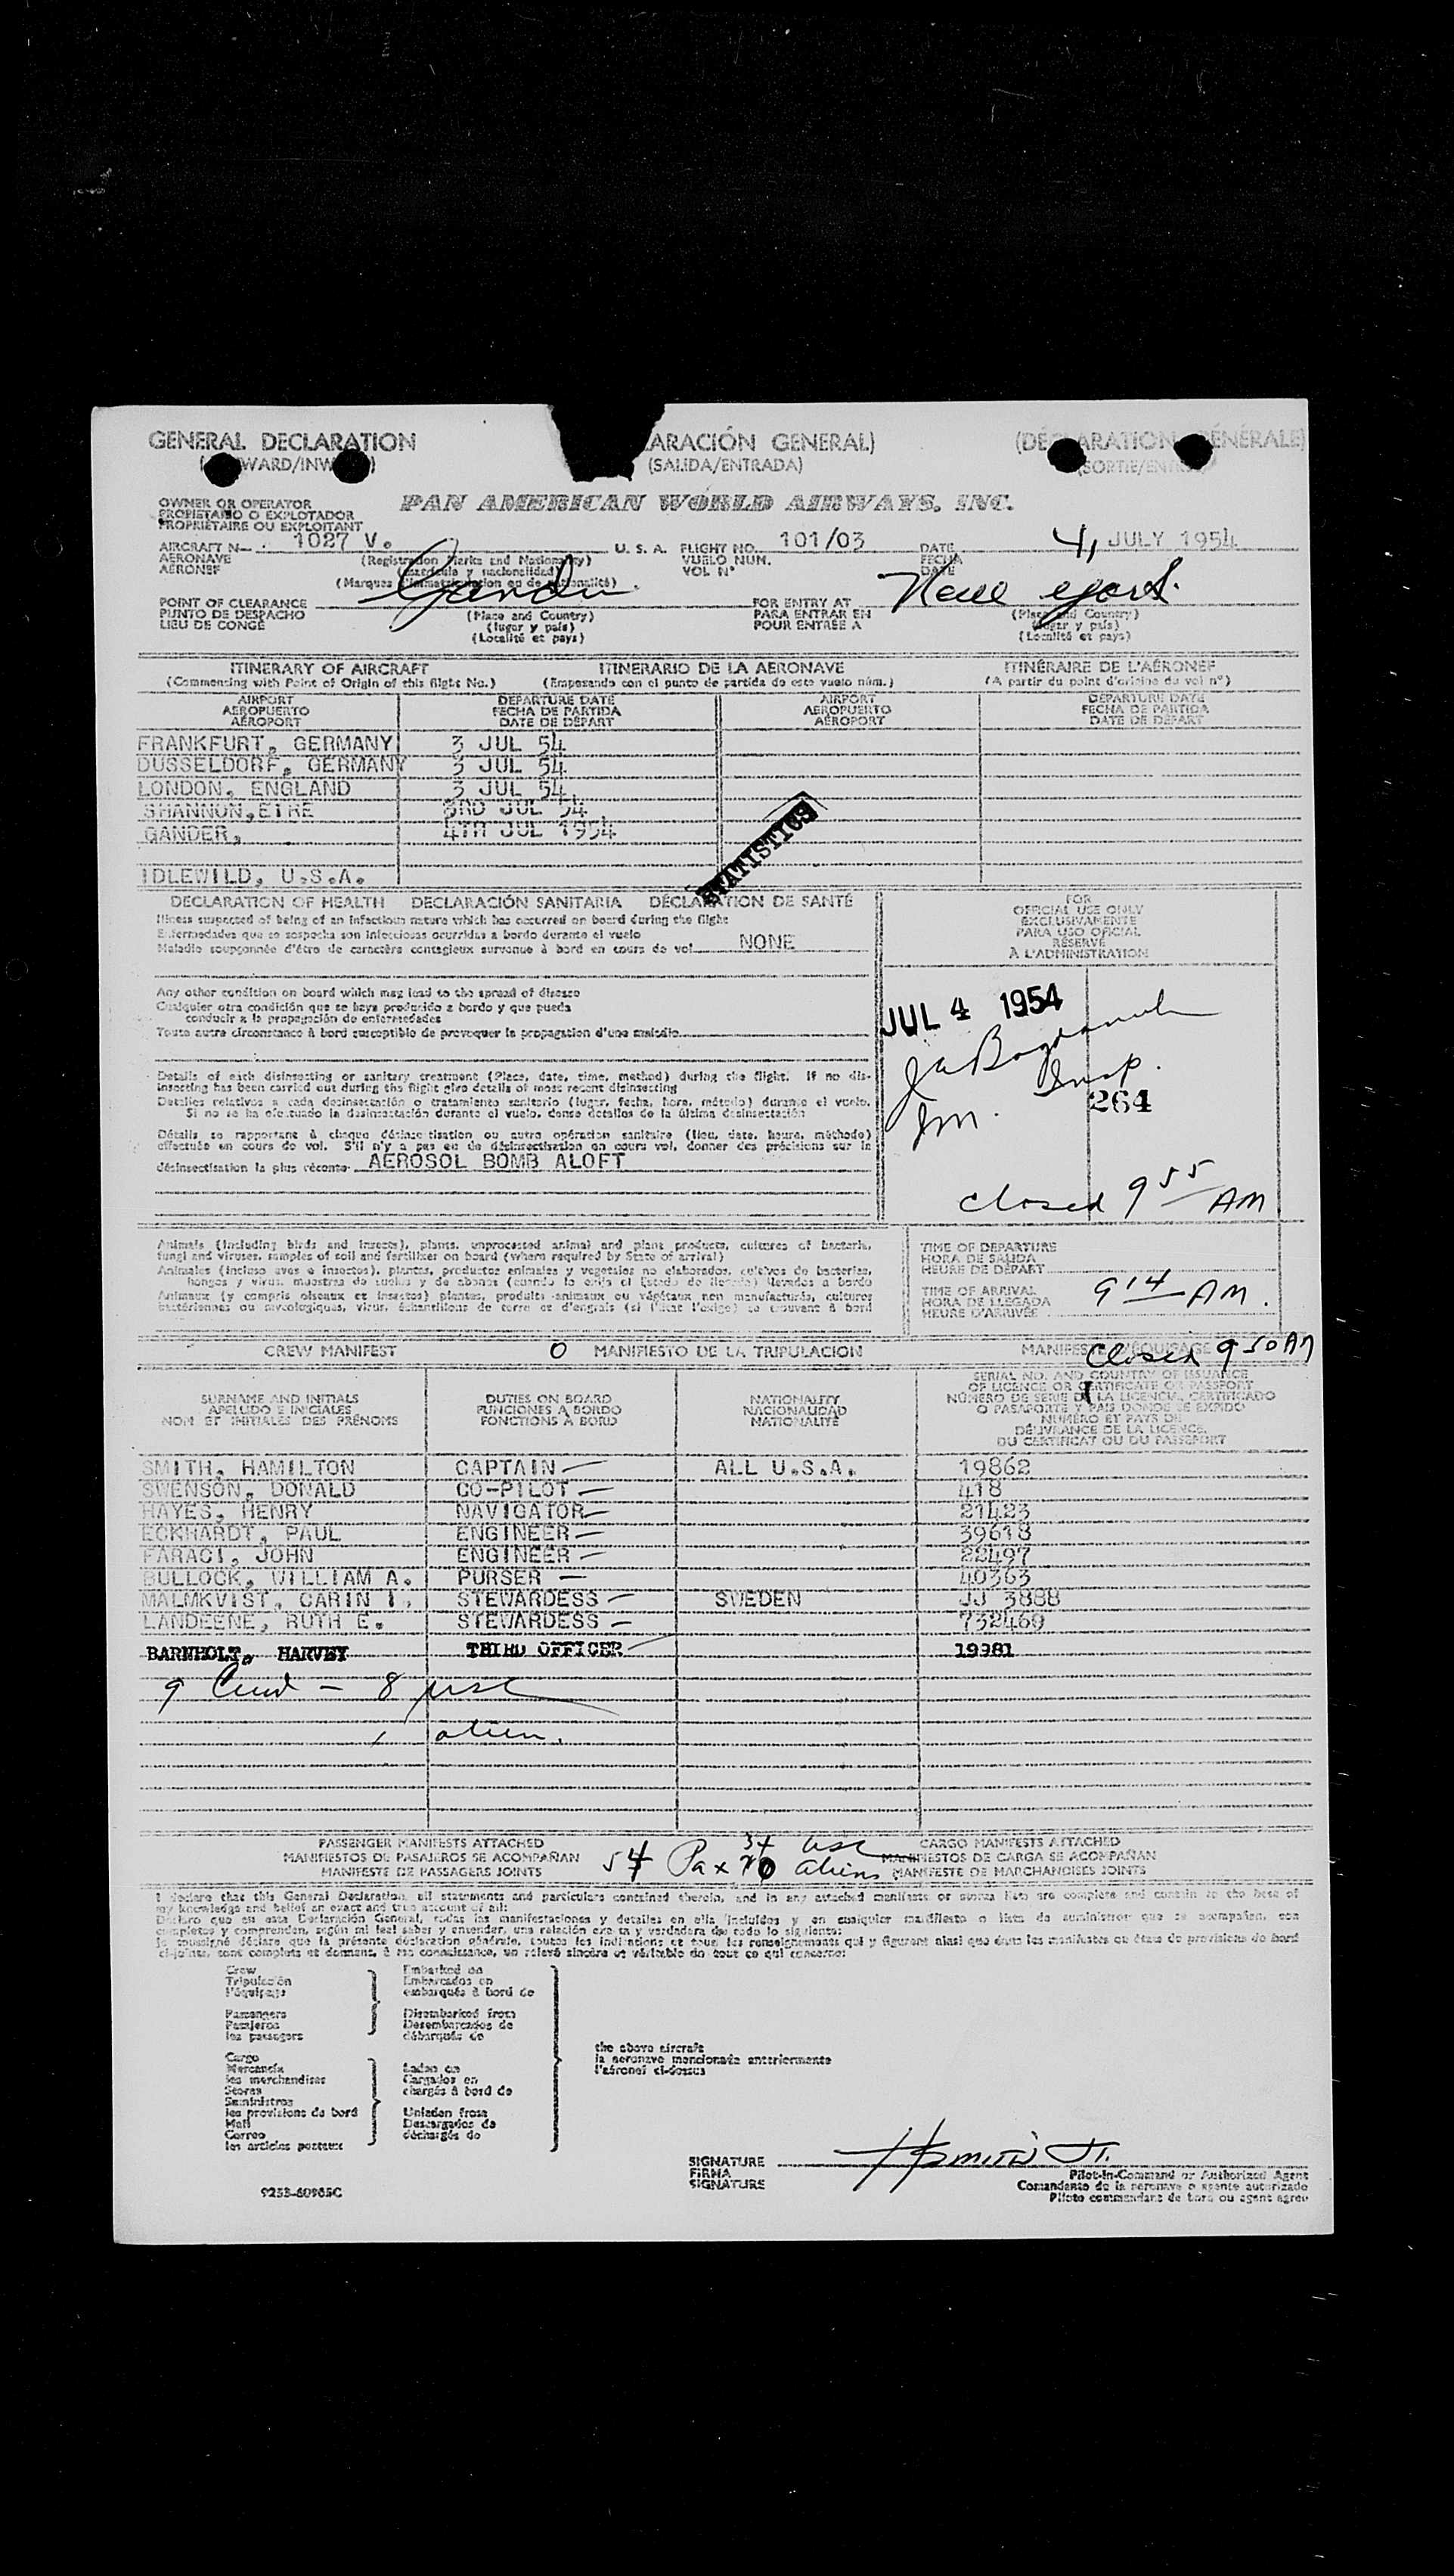 GENERAL DECLARATION
ARACIÓN GENERAL)
(SALIDA/ENTRADA)
OWNER OR OPERATOR
PROPIETARIO O EXPLOTADOR
PROPRIÉTAIRE OU EXPLOITANT
PAN AMERICAN WORLD AIRWAYS, INC.
AIRCRAFT N— 1027 V. U. S. A. FLIGHT NO. 101/03 DATE 4, JULY 1954
AERONAVE (Registration Marks and Nationality) VUELO NUM. FECHA
AÉRONEF (matrícula y nacionalidad) VOL N° DATE
(Marques d'immatriculation et de nationalité)
POINT OF CLEARANCE Gander FOR ENTRY AT New York.
PUNTO DE DESPACHO (Place and Country) PARA ENTRAR EN (Place and Country)
LIEU DE CONGÉ (lugar y país) POUR ENTRÉE A (lugar y país)
(Localité et pays) (Localité et pays)
ITINERARY OF AIRCRAFT ITINERARIO DE LA AERONAVE ITINÉRAIRE DE L'AÉRONEF
(Commencing with Point of Origin of this flight No.) (Empezando con el punto de partida de este vuelo núm.) (A partir du point d'origine du vol n°)
AIRPORT DEPARTURE DATE AIRPORT DEPARTURE DATE
AEROPUERTO FECHA DE PARTIDA AEROPUERTO FECHA DE PARTIDA
AÉROPORT DATE DE DÉPART AÉROPORT DATE DE DÉPART
FRANKFURT, GERMANY 3 JUL 54
DUSSELDORF, GERMANY 3 JUL 54
LONDON, ENGLAND 3 JUL 54
SHANNON,EIRE 3RD JUL 54
GANDER, 4TH JUL 1954
IDLEWILD, U.S.A.
STATISTICS
DECLARATION OF HEALTH DECLARACIÓN SANITARIA DÉCLARATION DE SANTÉ
Illness suspected of being of an infectious nature which has occurred on board during the flight
Enfermedades que se sospecha son infecciosas ocurridas a bordo durante el vuelo
Maladie soupçonnée d'être de caractère contagieux survenue à bord en cours de vol NONE
Any other condition on board which may lead to the spread of disease
Cualquier otra condición que se haya producido a bordo y que pueda
conducir a la propagación de enfermedades
Toute autre circonstance à bord susceptible de provoquer la propagation d'une maladie
Details of each disinsecting or sanitary treatment (Place, date, time, method) during the flight. If no dis-
insecting has been carried out during the flight give details of most recent disinsecting
Detalles relativos a cada desinsectación o tratamiento sanitario (lugar, fecha, hora, método) durante el vuelo.
Si no se ha efectuado la desinsectación durante el vuelo, dense detalles de la última desinsectación
Détails se rapportant à chaque désinsectisation ou autre opération sanitaire (lieu, date, heure, méthode)
effectuée en cours de vol. S'il n'y a pas eu de désinsectisation en cours vol, donner des précisions sur la
désinsectisation la plus récente AEROSOL BOMB ALOFT
FOR
OFFICIAL USE ONLY
EXCLUSIVAMENTE
PARA USO OFICIAL
RÉSERVÉ
À L'ADMINISTRATION
JUL 4 1954
Insp.
Im.
264
Closed 9 55 AM
Animals (including birds and insects), plants, unprocessed animal and plant products, cultures of bacteria,
fungi and viruses, samples of soil and fertilizer on board (where required by State of arrival)
Animales (incluso aves e insectos), plantas, productos animales y vegetales no elaborados, cultivos de bacterias,
hongos y virus, muestras de suelos y de abonos (cuando lo exija el Estado de llegada) llevados a bordo
Animaux (y compris oiseaux et insectes) plantes, produits animaux ou végétaux non manufacturés, cultures
bactériennes ou mycologiques, virus, échantillons de terre et d'engrais (si l'état l'exige) se trouvant à bord
TIME OF DEPARTURE
HORA DE SALIDA
HEURE DE DÉPART
TIME OF ARRIVAL
HORA DE LLEGADA 9 14 AM.
HEURE D'ARRIVÉE
CREW MANIFEST O MANIFIESTO DE LA TRIPULACION
Closed 9 50 AM
SURNAME AND INITIALS
APELLIDO E INICIALES
NOM ET INITIALES DES PRÉNOMS
DUTIES ON BOARD
FUNCIONES A BORDO
FONCTIONS À BORD
NATIONALITY
NACIONALIDAD
NATIONALITÉ
SERIAL NO. AND COUNTRY OF ISSUANCE
OF LICENCE OR CERTIFICATE OR PASSPORT
NÚMERO DE SERIE DE LA LICENCIA, CERTIFICADO
O PASAPORTE Y PAIS DONDE SE EXPIDIO
NUMÉRO ET PAYS DE
DÉLIVRANCE DE LA LICENCE,
DU CERTIFICAT OU DU PASSEPORT
SMITH, HAMILTON CAPTAIN ALL U.S.A. 19862
SWENSON, DONALD CO-PILOT 418
HAYES, HENRY NAVIGATOR 21423
ECKHARDT, PAUL ENGINEER 39618
FARACI, JOHN ENGINEER 22497
BULLOCK, WILLIAM A. PURSER 40363
MALMKVIST, CARIN I. STEWARDESS SWEDEN JJ 3888
LANDEENE, RUTH E. STEWARDESS 732469
BARNHOLT, HARVEY THIRD OFFICER 19381
9 Crew - 8 usc
1 alien.
PASSENGER MANIFESTS ATTACHED CARGO MANIFESTS ATTACHED
MANIFIESTOS DE PASAJEROS SE ACOMPAÑAN MANIFIESTOS DE CARGA SE ACOMPAÑAN
MANIFESTE DE PASSAGERS JOINTS MANIFESTE DE MARCHANDISES JOINTS
54 Pax 34 usc
20 aliens
I declare that this General Declaration, all statements and particulars contained therein, and in any attached manifests or stores lists are complete and contain to the best of
my knowledge and belief an exact and true account of all:
Declaro que en esta Declaración General, todas las manifestaciones y detalles en ella incluídos y en cualquier manifiesto o lista de suministros que se acompañen, son
completos y comprenden, según mi leal saber y entender, una relación exacta y verdadera de todo lo siguiente:
Je soussigné déclare que la présente déclaration générale, toutes les indications et tous les renseignements qui y figurent ainsi que dans les manifestes ou états de provisions de bord
ci-joints, sont complets et donnent, à ma connaissance, un relevé sincère et véritable de tout ce qui concerne:
Crew Embarked on
Tripulación Embarcados en
l'équipage embarqués à bord de
Passengers Disembarked from
Pasajeros Desembarcados de
les passagers débarqués de
Cargo
Mercancía Laden on
les merchandises Cargados en
Stores chargés à bord de
Suministros
les provisions de bord Unladen from
Mail Descargados de
Correo déchargés de
les articles postaux
the above aircraft
la aeronave mencionada anteriormente
l'aéronef ci-dessus
SIGNATURE HSmith Jr.
FIRMA
SIGNATURE
Pilot-in-Command or Authorized Agent
Comandante de la aeronave o agente autorizado
Pilote commandant de bord ou agent agréé
9253-60965C